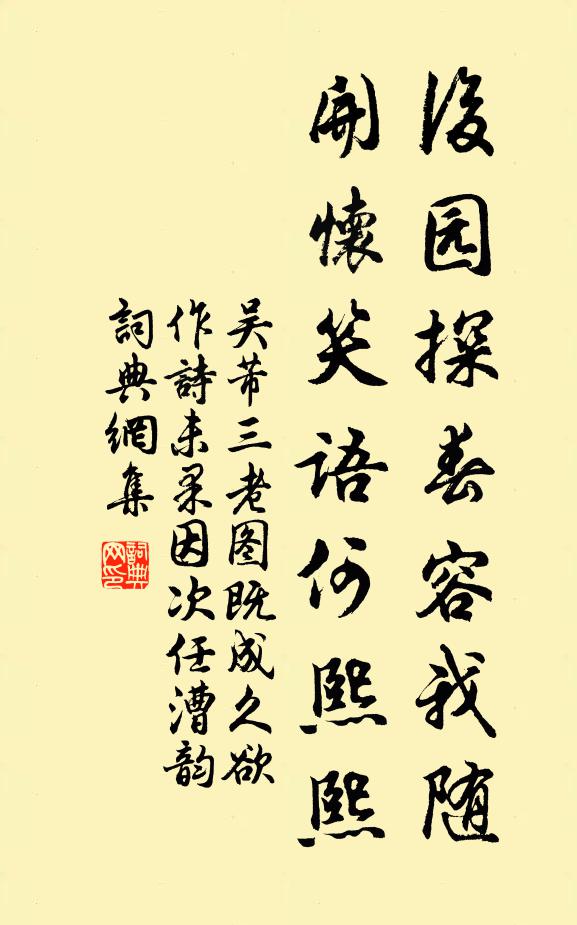 後园探春容我随
開懷笑語何熙熙
吴芾三老图既成久欲
作詩未果因次任漕韵
詞典網集
詞典网印